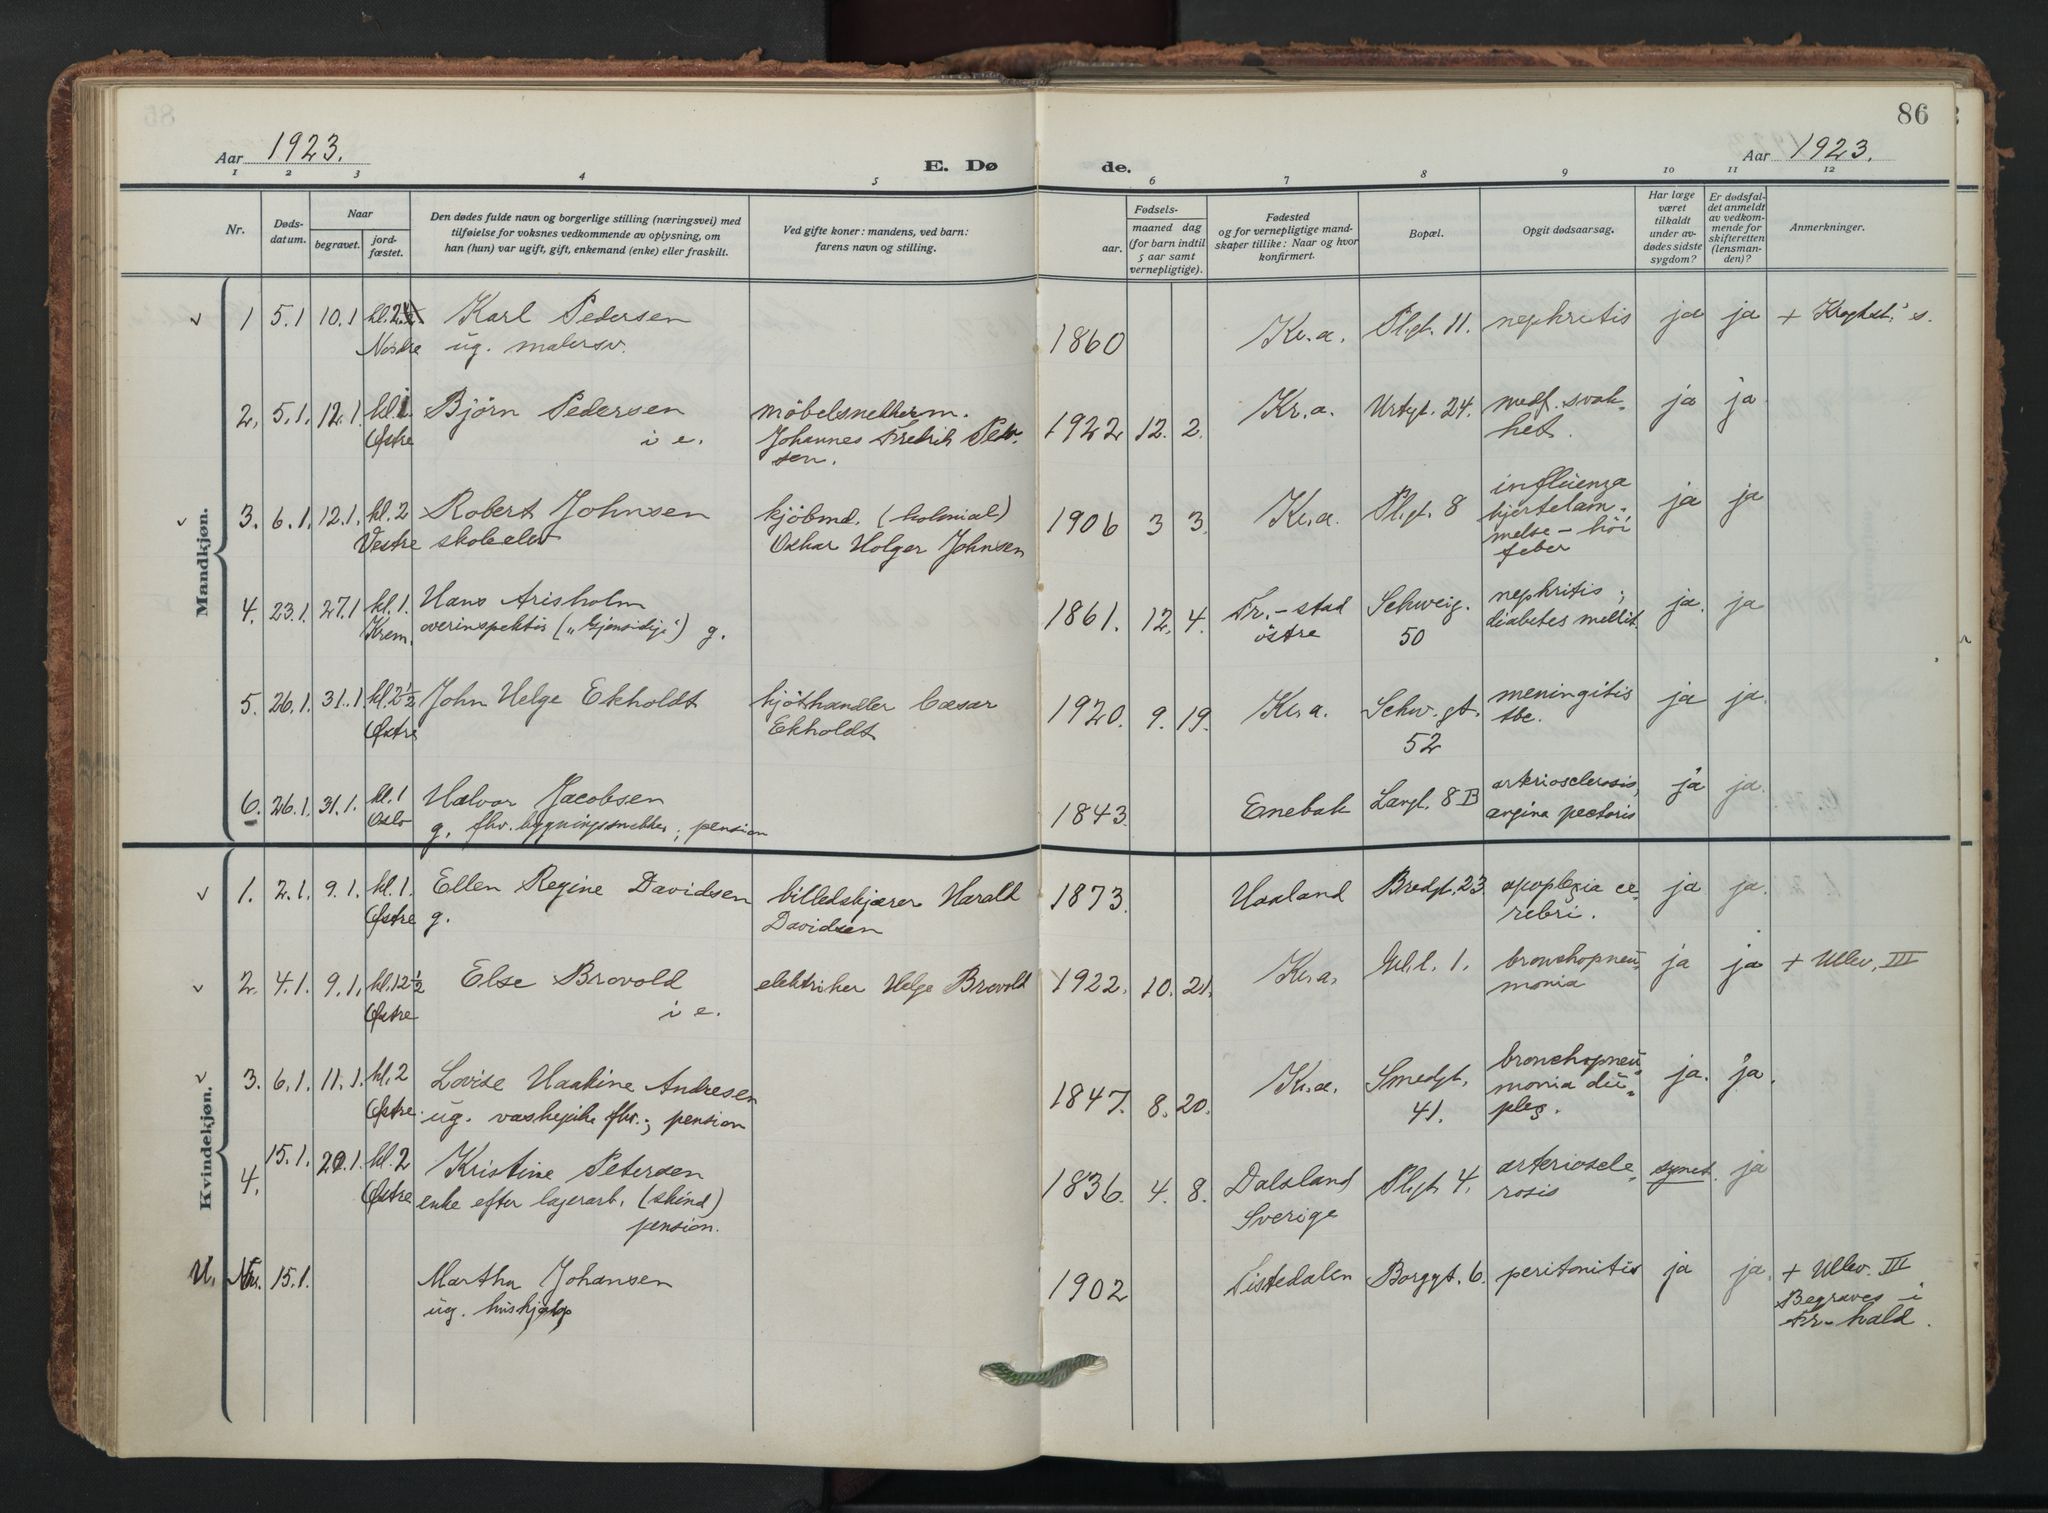 86
Aar 1923.
E. Dø de.
Aar 1923.
1 2 3 4 5 6 7 8 9 10 11 12
Nr.
Døds-
datum.
Naar
begravet.
jord-
fæstet.
Den dødes fulde navn og borgerlige stilling (næringsvei) med
tilføielse for voksnes vedkommende av oplysning, om
han (hun) var ugift, gift, enkemand (enke) eller fraskilt.
Ved gifte koner: mandens, ved barn:
farens navn og stilling.
Fødsels-
aar.
maaned dag
(for barn indtil
5 aar samt
vernepligtige).
Fødested
og for vernepligtige mand-
skaper tillike: Naar og hvor
konfirmert.
Bopæl.
Opgit dødsaarsag.
Har læge
været
tilkaldt
under av-
dødes sidste
sygdom?
Er dødsfal-
det anmeldt
av vedkom-
mende for
skifteretten
(lensman-
den)?
Anmerkninger.
Mandkjøn.
v 1 5.1 10.1 Karl Pedersen 1860 Kr.a. Pl.gt. 11. nephritis ja ja + Krohgst.'s.
Nordre ug. malersv.
2. 5.1. 12.1 kl.1. Bjørn Pedersen møbelsnekkerm. 1922 12. 2. Kr.a. Urtgt. 24. medf. svak-
Østre i e. Johannes Fredrik Peder- het. ja ja
sen.
v 3. 6.1. 12.1. kl.2 Robert Johnsen kjøbmd. (kolonial) 1906 3 3. Kr.a. Pl.gt. 8 influenza ja ja
Vestre skoleelev Oskar Holger Johnsen hjertelam-
melse – høi
feber
4. 23.1 27.1 kl.1. Hans Arisholm 1861. 12. 4. Fr.-stad Schweig. nephritis; ja. ja
Krem. overinspektør („Gjensidige") g. østre 50 diabetes mellit.
5. 26.1. 31.1 kl.2½ John Helge Ekholdt kjøthandler Cæsar 1920. 9. 19. Kr.a. Schw.gt. meningitis ja ja.
Østre Ekholdt 52 tbc.
6. 26.1. 31.1. kl.1 Halvor Jacobsen 1843. Enebak Langt. 8 B arteriosclerosis, ja ja.
Oslo g. fhv. bygningssnekker; pension angina pectoris
Kvindekjøn.
v 1. 2.1. 9.1. kl.1. Ellen Regine Davidsen billedskjærer Harald 1873. Haaland Bredgt. 23. apoplexia ce- ja ja.
Østre g. Davidsen rebri.
v 2. 4.1. 9.1. kl.12½ Else Brovold elektriker Helge Brovold 1922. 10. 21. Kr.a. bronchopneu- ja ja + Ullev. III
Østre i e. monia
v 3. 6.1. 11.1. kl.2 Lovise Haakine Andresen 1847. 8. 20. Kr.a. Smedgt. bronchopneu- ja. ja.
Østre. ug. fhv.; pension 41. monia du-
plex.
4. 15.1. kl.2 Kristine Petersen 1836. 4. 8. Dalsland Pl.gt. 4. arterioscle- synet. ja
Østre enke efter lagerarb. (skind) Sverige rosis
pension.
U. Nr. 15.1. Martha Johansen 1902 Tistedalen Borggt. 6. peritonitis ja ja. + Ullev. III
ug. hushjelp Begraves i
Fr-hald.